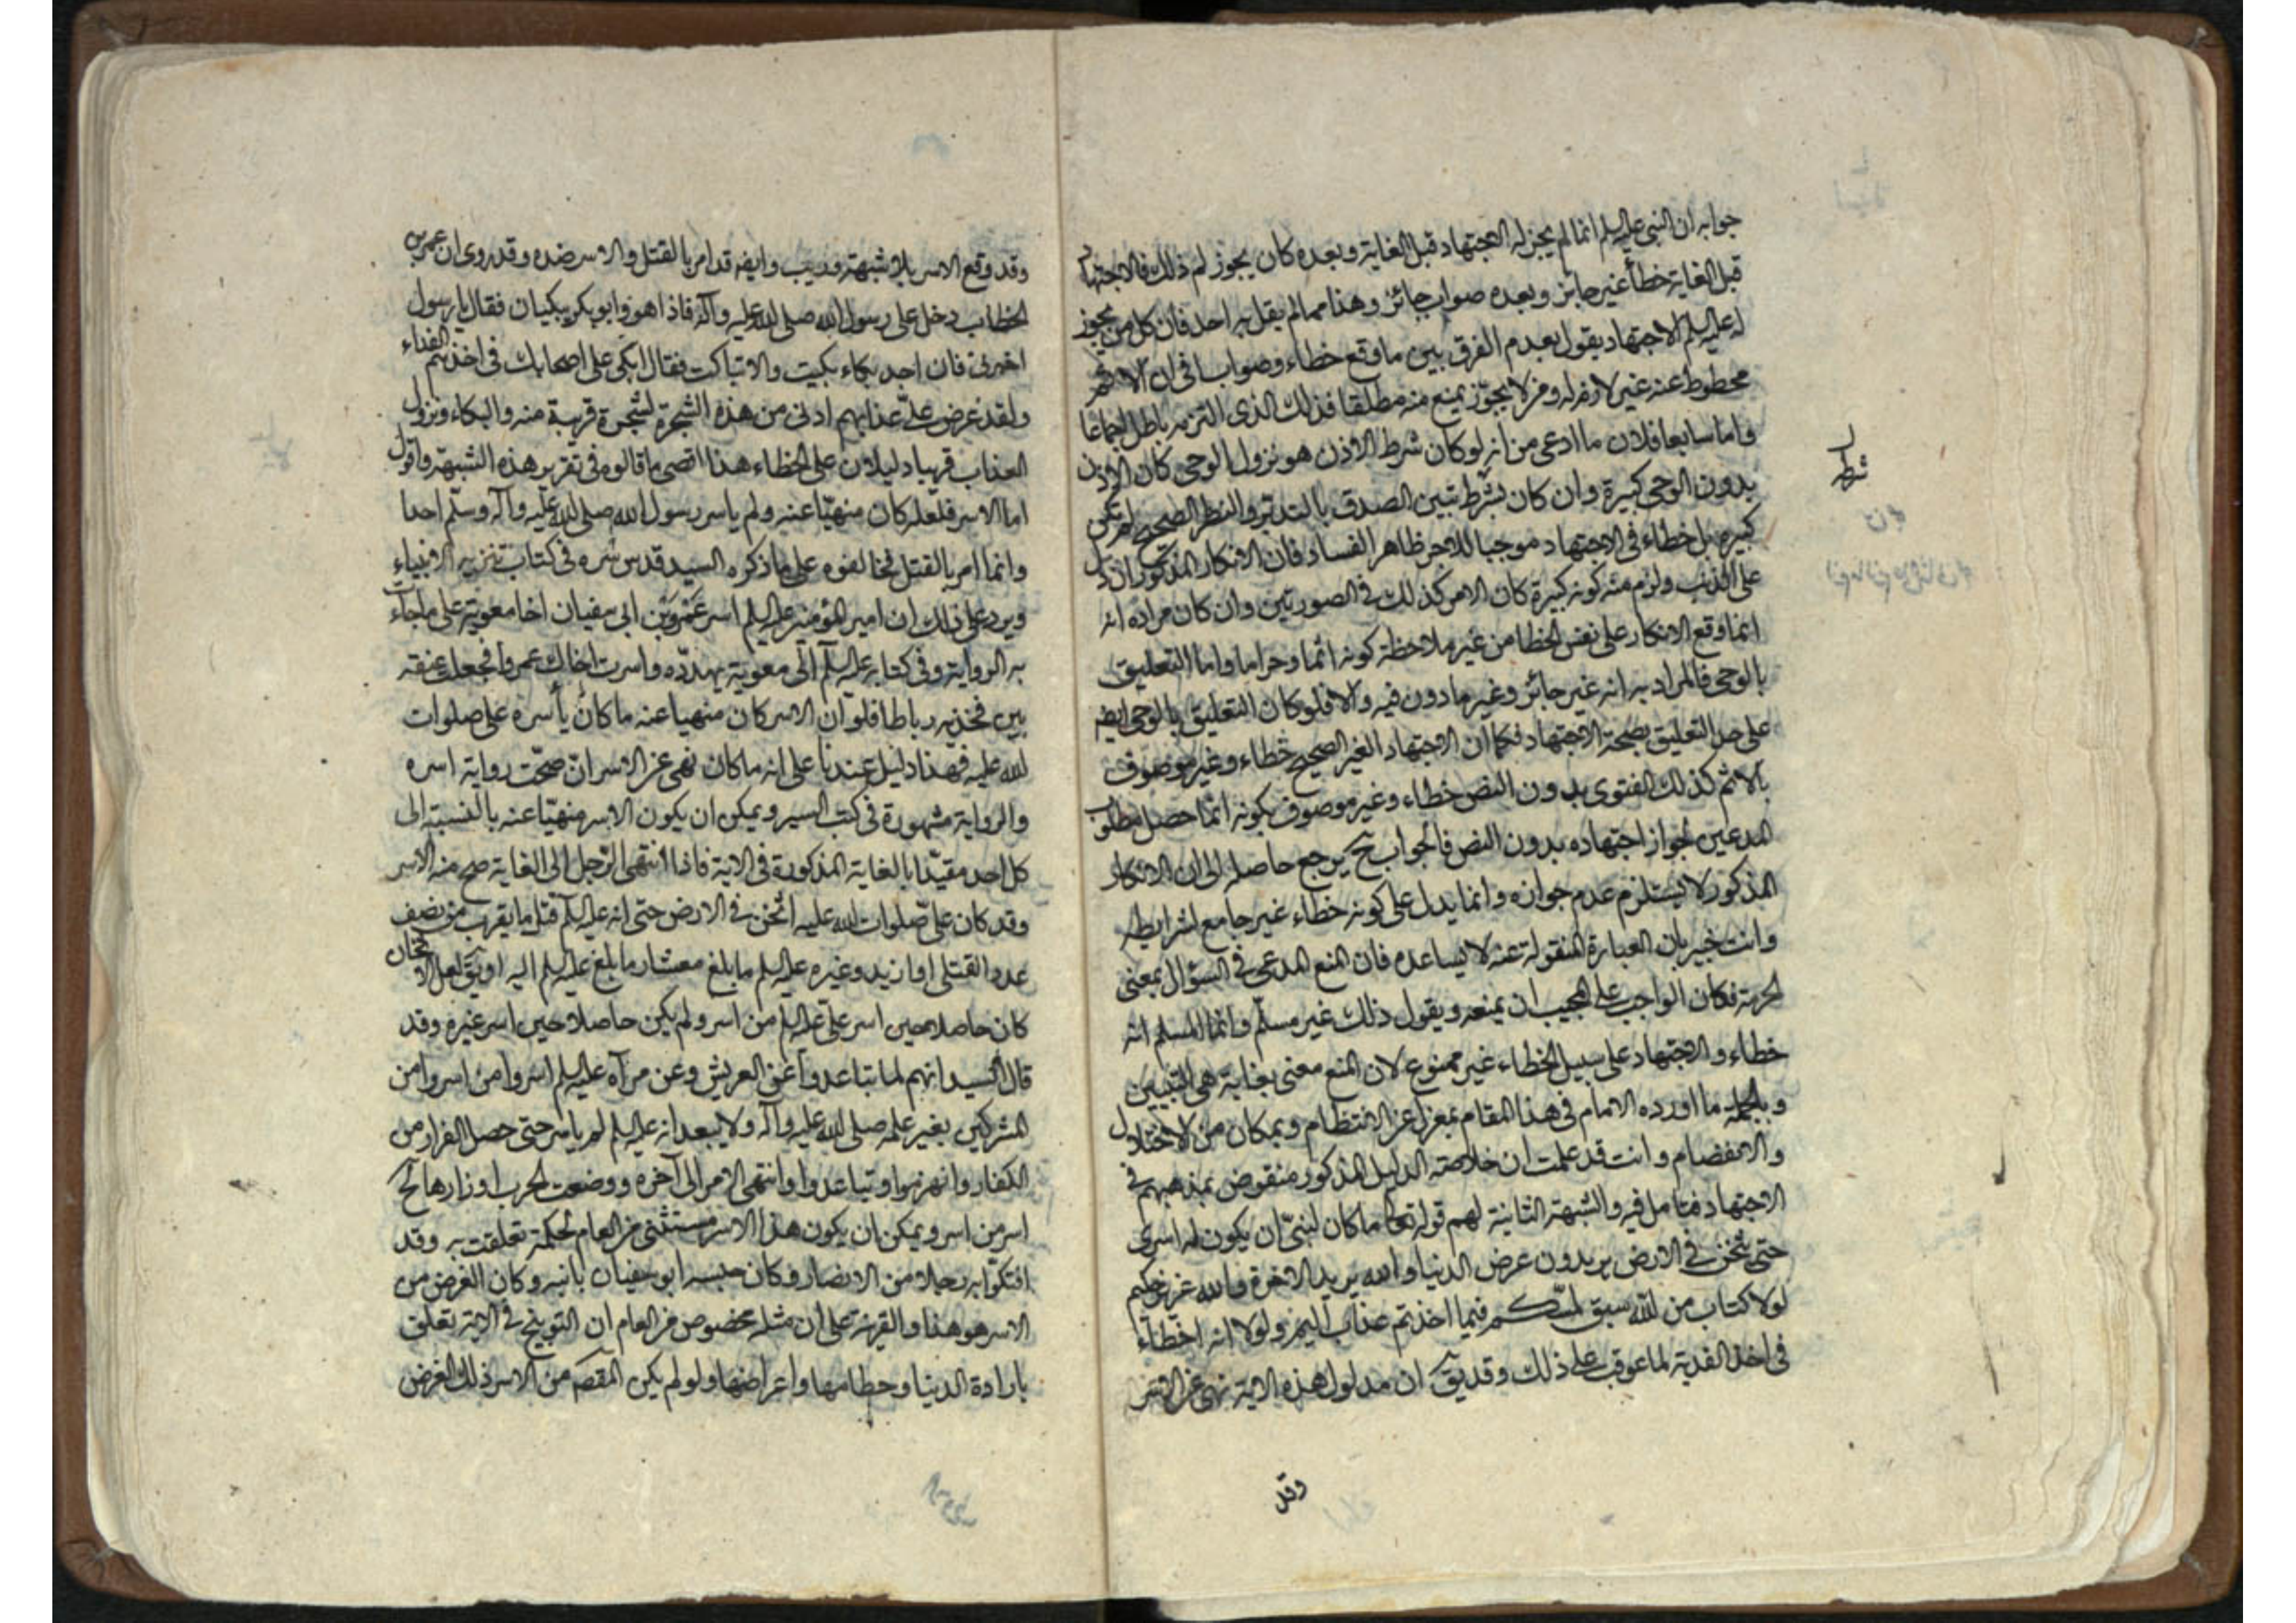 جوابه ان النبى عليه السلم انما لم يجز له الاجتهاد قبل الغاية وبعده كان يجوز لم ذلك فالاجتهاد
قبل الغاية خطأ غير جائز وبعده صواب جائز وهذا مما لم يقل به احد فان كل من يجوز
له عليه السلم الاجتهاد يقول بعدم الفرق بين ما وقع خطاء وصوابا فى ان الاثم
محطوط عنه غير لازم له ومن لا يجوّز يمنع منه مطلقا فذلك الذى التزمه باطل اجماعا
واما سابعا فلان ما ادعى من انه لو كان شرط الاذن هو نزول الوحى كان الاذن
بدون الوحى كبيرة وان كان بشرط تبين الصدق بالتدبر والنظر الصحيح لم يكن
كبيرة بل خطاء فى الاجتهاد موجبا للاجر ظاهر الفساد فان الانكار المذكور ان دل
على الذنب ولزم منه كونه كبيرة كان الامر كذلك فى الصورتين وان كان مراده انه
انما وقع الانكار على نفس الخطا من غير ملاحظة كونه اثما وحراما واما التعليق
بالوحى فالمراد به انه غير جائز وغير مأذون فيه والا فلو كان التعليق بالوحى ايضا
على حد التعليق بصحة الاجتهاد فكما ان الاجتهاد الغير الصحيح خطاء وغير موصوف
بالاثم كذلك الفتوى بدون النص خطاء وغير موصوف بكونه اثما حصل مطلوب
المدعين لجواز اجتهاده بدون النص فالجواب ح يرجع حاصله الى ان الانكار
المذكور لا يستلزم عدم جوازه وانما يدل على كونه خطاء غير جامع لشرايطه
وانت خبير بان العبارة المنقولة عنه لا يساعده فان المنع المدعى فى السؤال بمعنى
الحرمة فكان الواجب على المجيب ان يمنعه ويقول ذلك غير مسلّم وانما المسلم انه
خطاء والاجتهاد على سبيل الخطاء غير ممنوع لان المنع معنى بغاية هى التبيين
وبالجملة ما اورده الامام فى هذا المقام بمعزل عن الانتظام وبمكان من الاختلال
والانفصام وانت قد علمت ان خلاصة الدليل المذكور منقوض بمذهبهم فى
الاجتهاد فتامل فيه والشبهة الثانية لهم قوله تعالى ما كان لنبىّ ان يكون له اسرى
حتى يثخن فى الارض يريدون عرض الدنيا والله يريد الاخرة والله عزيز حكيم
لولا كتاب من الله سبق لمسّكم فيما اخذتم عذاب اليم ولولا انه اخطاء
فى اخذ الفدية لما عوقب على ذلك وقد يقٓ ان مدلول هذه الاية نهى عن الاسر
وقد
شرط
وقد وقع الاسر بلا شبهة وريب وايضا قد امر بالقتل والاسر ضده وقد روى ان عمر بن
الخطاب دخل على رسول الله صلى الله عليه وآله فاذا هو وابو بكر يبكيان فقال يا رسول
اخبرنى فان اجد بكاء بكيت والا تباكيت فقال ابكى على اصحابك فى اخذهم الفداء
ولقد عرض علىّ عذابهم ادنى من هذه الشجرة لشجرة قريبة منه والبكاء ونزول
العذاب قريبا دليلان على الخطاء هذا اقصى ما قالوه فى تقرير هذه الشبهة واقول
اما الاسر فلعله كان منهيّا عنه ولم ياسر رسول الله صلى الله عليه وآله وسلّم احدا
وانما امر بالقتل فخالفوه على ما ذكره السيد قدس سره فى كتاب تنزيه الانبياء
ويرد على ذلك ان امير المؤمنين عليه السلم اسر عمرو بن ابى سفيان اخا معوية على ما جاءت
به الرواية وفى كتابه عليه السلم الى معوية يهدّده واسرت اخاك عمروا فجعلت عنقه
بين فخذيه رباطا فلو ان الاسر كان منهيا عنه ما كان يأسره على صلوات
الله عليه فهذا دليل عندنا على انه ما كان نهى عن الاسر ان صحّت رواية اسره
والرواية مشهورة فى كتب السير ويمكن ان يكون الاسر منهيّا عنه بالنسبة الى
كل احد مقيّدا بالغاية المذكورة فى الاية فاذا انتهى الرّجل الى الغاية صح منه الاسر
وقد كان على صلوات الله عليه اثخن فى الارض حتى انه عليه السلم قتل ما يقرب من نصف
عدد القتلى او ازيد وغيره عليه السلم ما بلغ معشار ما بلغ عليه السلم اليه او يقٓ لعل الاثخان
كان حاصلا حين اسر على عليه السلم من اسر ولم يكن حاصلا حين اسر غيره وقد
قال السيد انهم لما تباعدوا عن العريش وعن مرآه عليه السلم اسروا من اسروا من
المشركين بغير علمه صلى الله عليه وآله ولا يبعد انه عليه السلم لم ياسر حتى حصل الفرار من
الكفار وانهزموا وتباعدوا وانتهى الامر الى آخره ووضعت الحرب اوزارها ح
اسر من اسر ويمكن ان يكون هذا الاسر مستثنى من العام لحكمة تعلقت به وقد
افتكّوا به رجلا من الانصار وكان حبسه ابو سفيان بابنه وكان الغرض من
الاسر هو هذا والقرينة على ان مثله مخصوص من العام ان التوبيخ فى الاية تعلق
بارادة الدنيا وحطامها واعراضها ولو لم يكن المقصٓ من الاسر ذلك الغرض